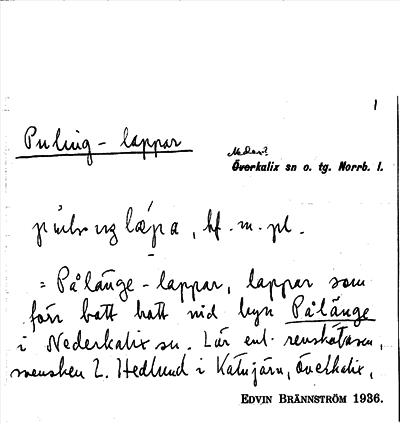 1
Puling-lappar
Neder?
Överkalix sn o. tg. Norrb. l.
læpa, bf. m. pl.
= Pålänge-lappar, lappar som
förr hatt hatt vid byn Pålänge
i Nederkalix sn. Lär enl.
svensken L. Hedlund i Katujärv, Överkalix,
EDVIN BRÄNNSTRÖM 1936.